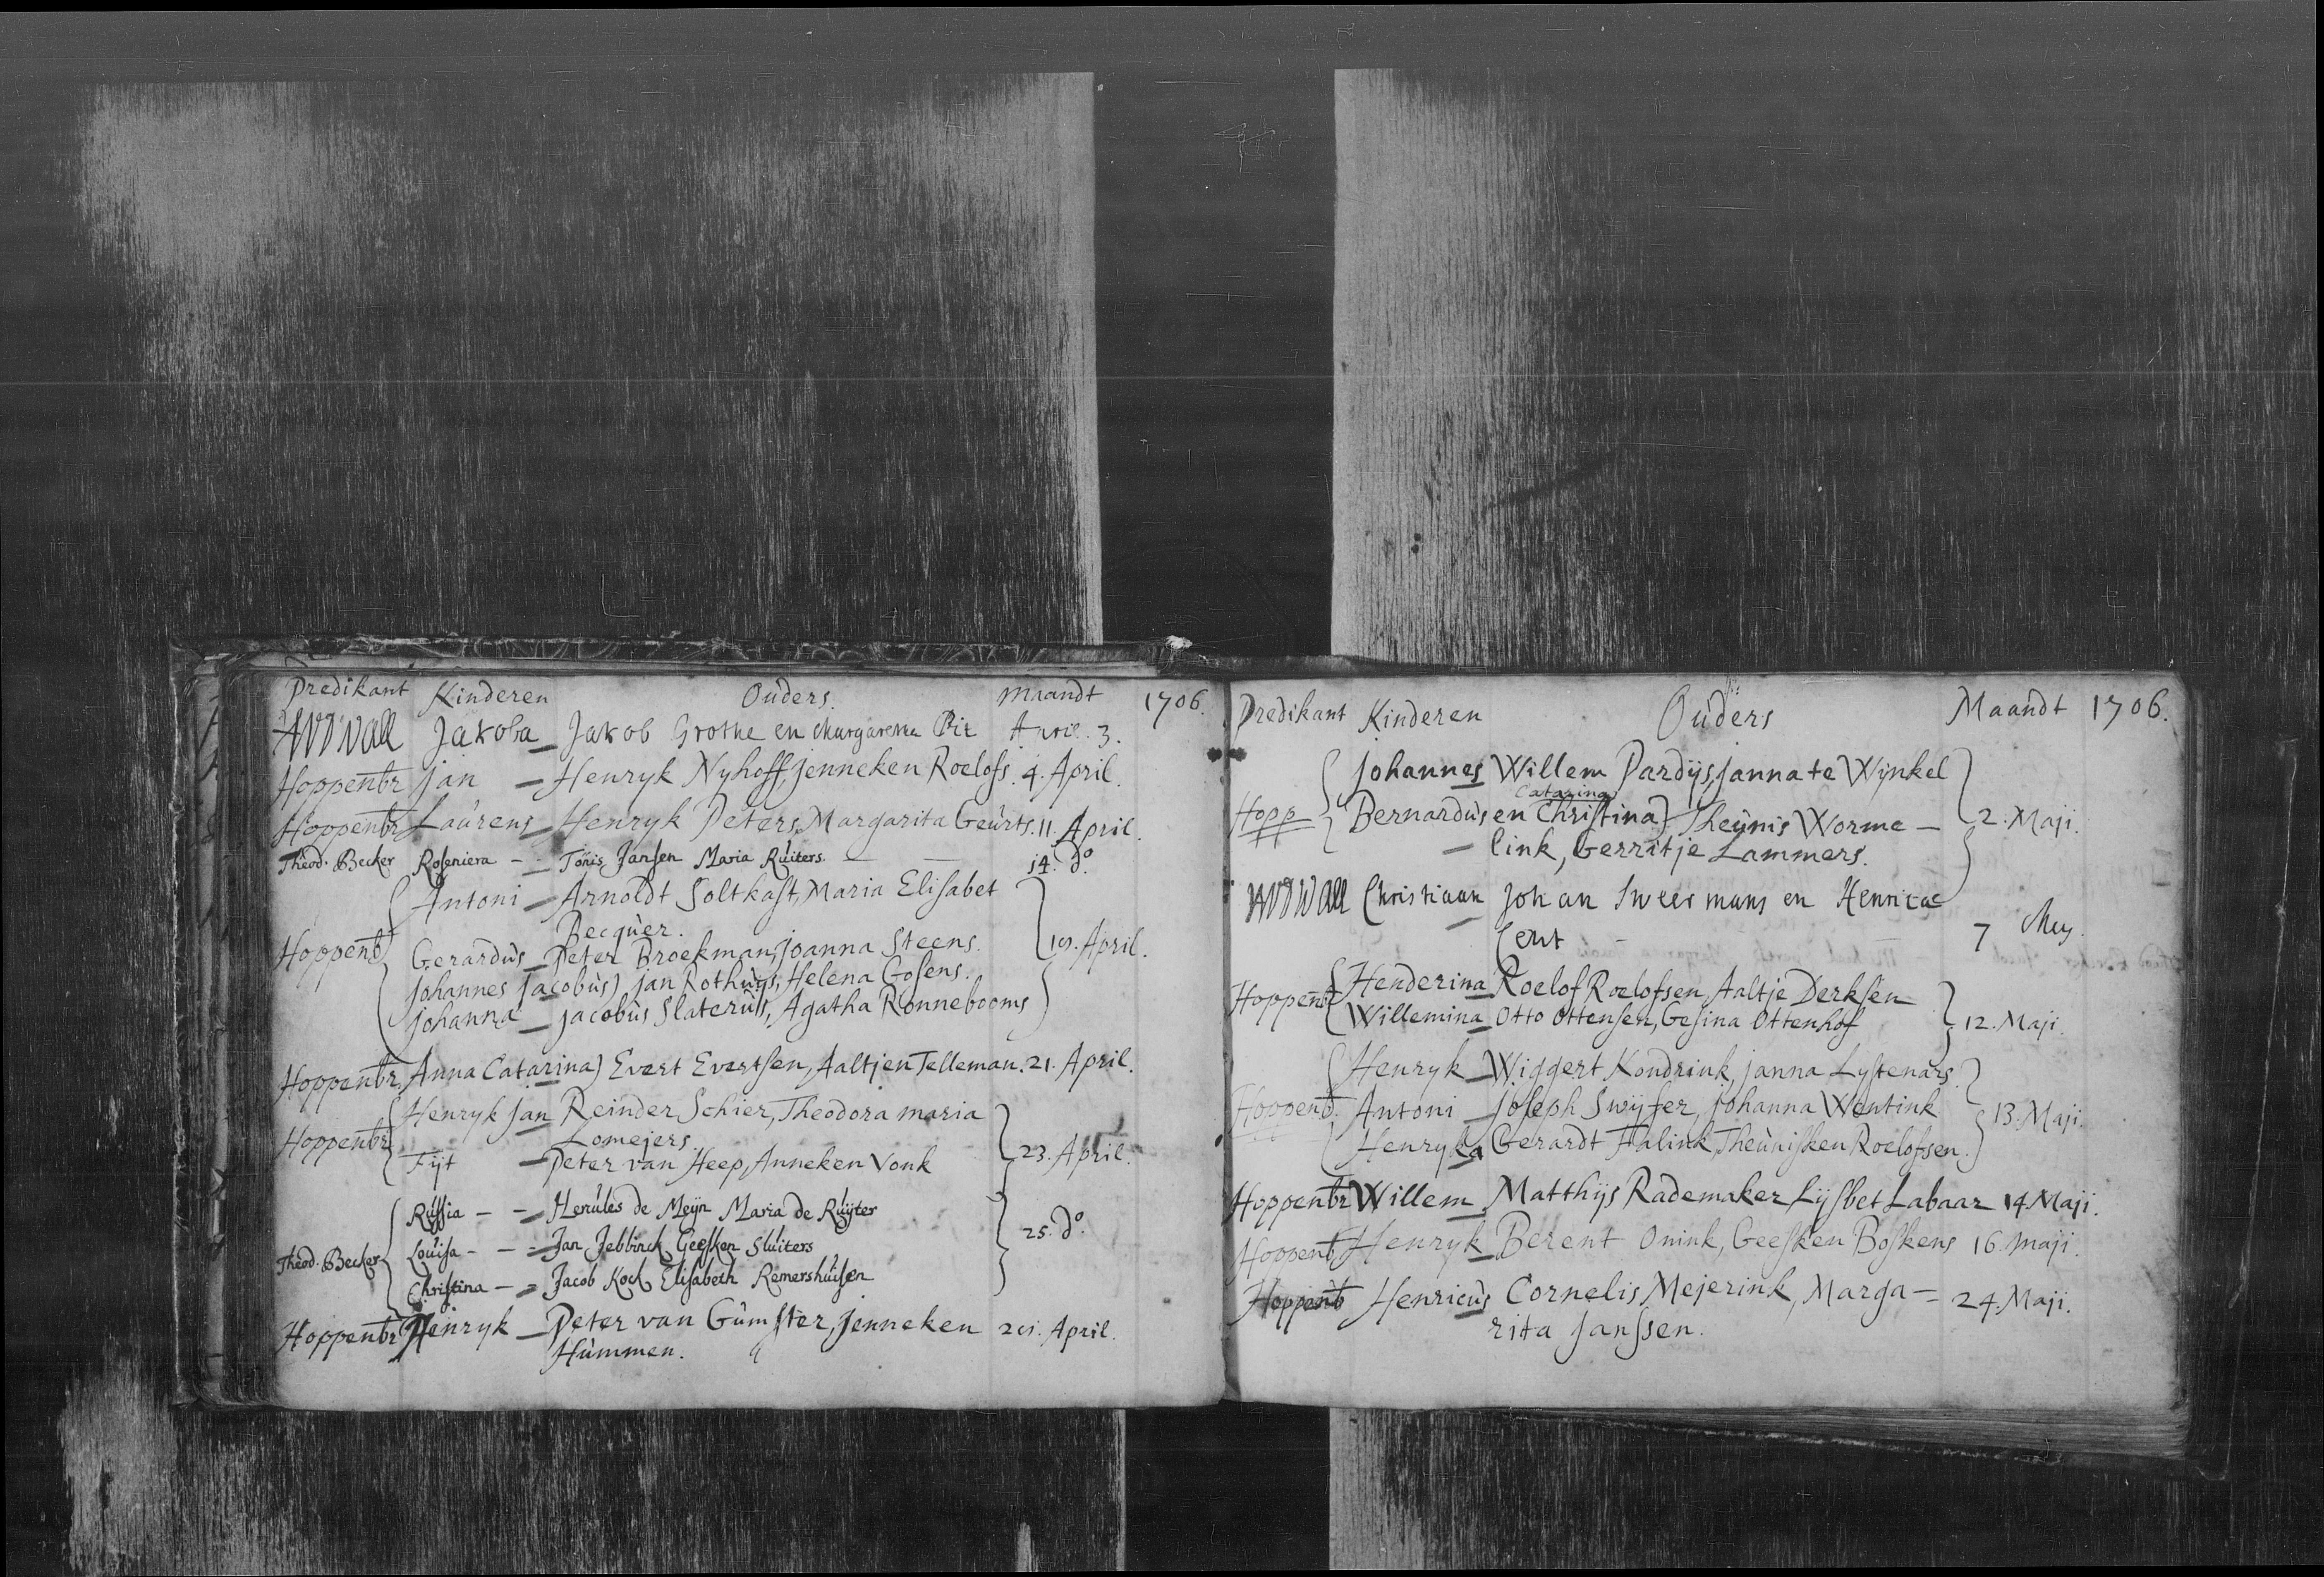 Predikant Kinderen Ouders. maandt 1706.
AVDWall Jakoba Jakob Grothe en Margareta Pit April. 3.
Hoppenbr jan Henryk Nyhoff, jenneken Roelofs. 4. April.
Hoppenbr Laurens Henryk Peters, Margarita Geurts. 11. April.
Theod. Becker Roseniera Tönis Jansen Maria Ruiters. 14. do.
Antoni Arnoldt Soltkast, Maria Elisabet
Becquer.
Hoppenb Gerardus Peter Broekman, joanna Steens. 19. April.
johannes jacobus) jan Rothuys, Helena Gosens.
johanna jacobus Slaterus, Agatha Ronnebooms
Hoppenbr. Anna Catarina) Evert Evertsen, Aaltjen Telleman. 21. April.
Henryk jan Reinder Schier, Theodora maria
Hoppenbr Lomejers.
Fijt Peter van Heep, Anneken Vonk 23. April.
Russia Herules de Meyn Maria de Ruyter
Theod. Becker Louisa Jan Jebbinck Geesken Sluiters 25. do.
Christina Jacob Kock Elisabeth Remershuisen
Hoppenbr Henryk Peter van Gumster, jenneken April.
Hummen.
Predikant Kinderen Ouders Maandt 1706.
johannes Willem Pardijs, janna te Wynkel
Catarina
Hopp Bernardus en Christina) Theunis Worme- 2. Maji.
link, Gerritje Lammers.
AVDWall Christiaan Johan Sweermans en Henrica
7 Mey
Henderina Roelof Roelofsen, Aaltje Derksen
Hoppenbr Willemina Otto Ottensen, Gesina Ottenhof 12. Maji.
Henryk Wiggert Kondrink, janna Lystenars.
Hoppenb. Antoni joseph Swyfer, johanna Wentink 13. Maji.
Henryka Gerardt Halink, Theunisken Roelofsen.
Hoppenbr Willem Matthijs Rademaker Lijsbet Labaar 14. Maji.
Hoppenb Henryk Berent Onink, Geesken Boskens 16. maji.
Hoppenb Henricus Cornelis Mejerink, Marga= 24. Maji.
rita janssen.